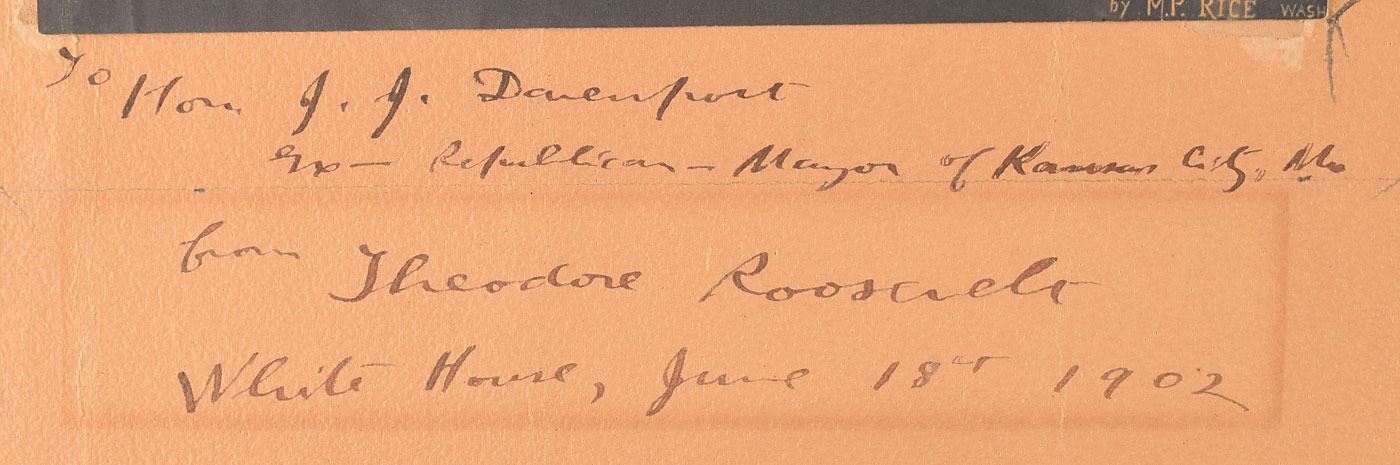 by M.P. RICE WASH
To Hon J. J. Davenport
Ex- Republican - Mayor of Kansas City, Mo
from Theodore Roosevelt
White House, June 18th 1902